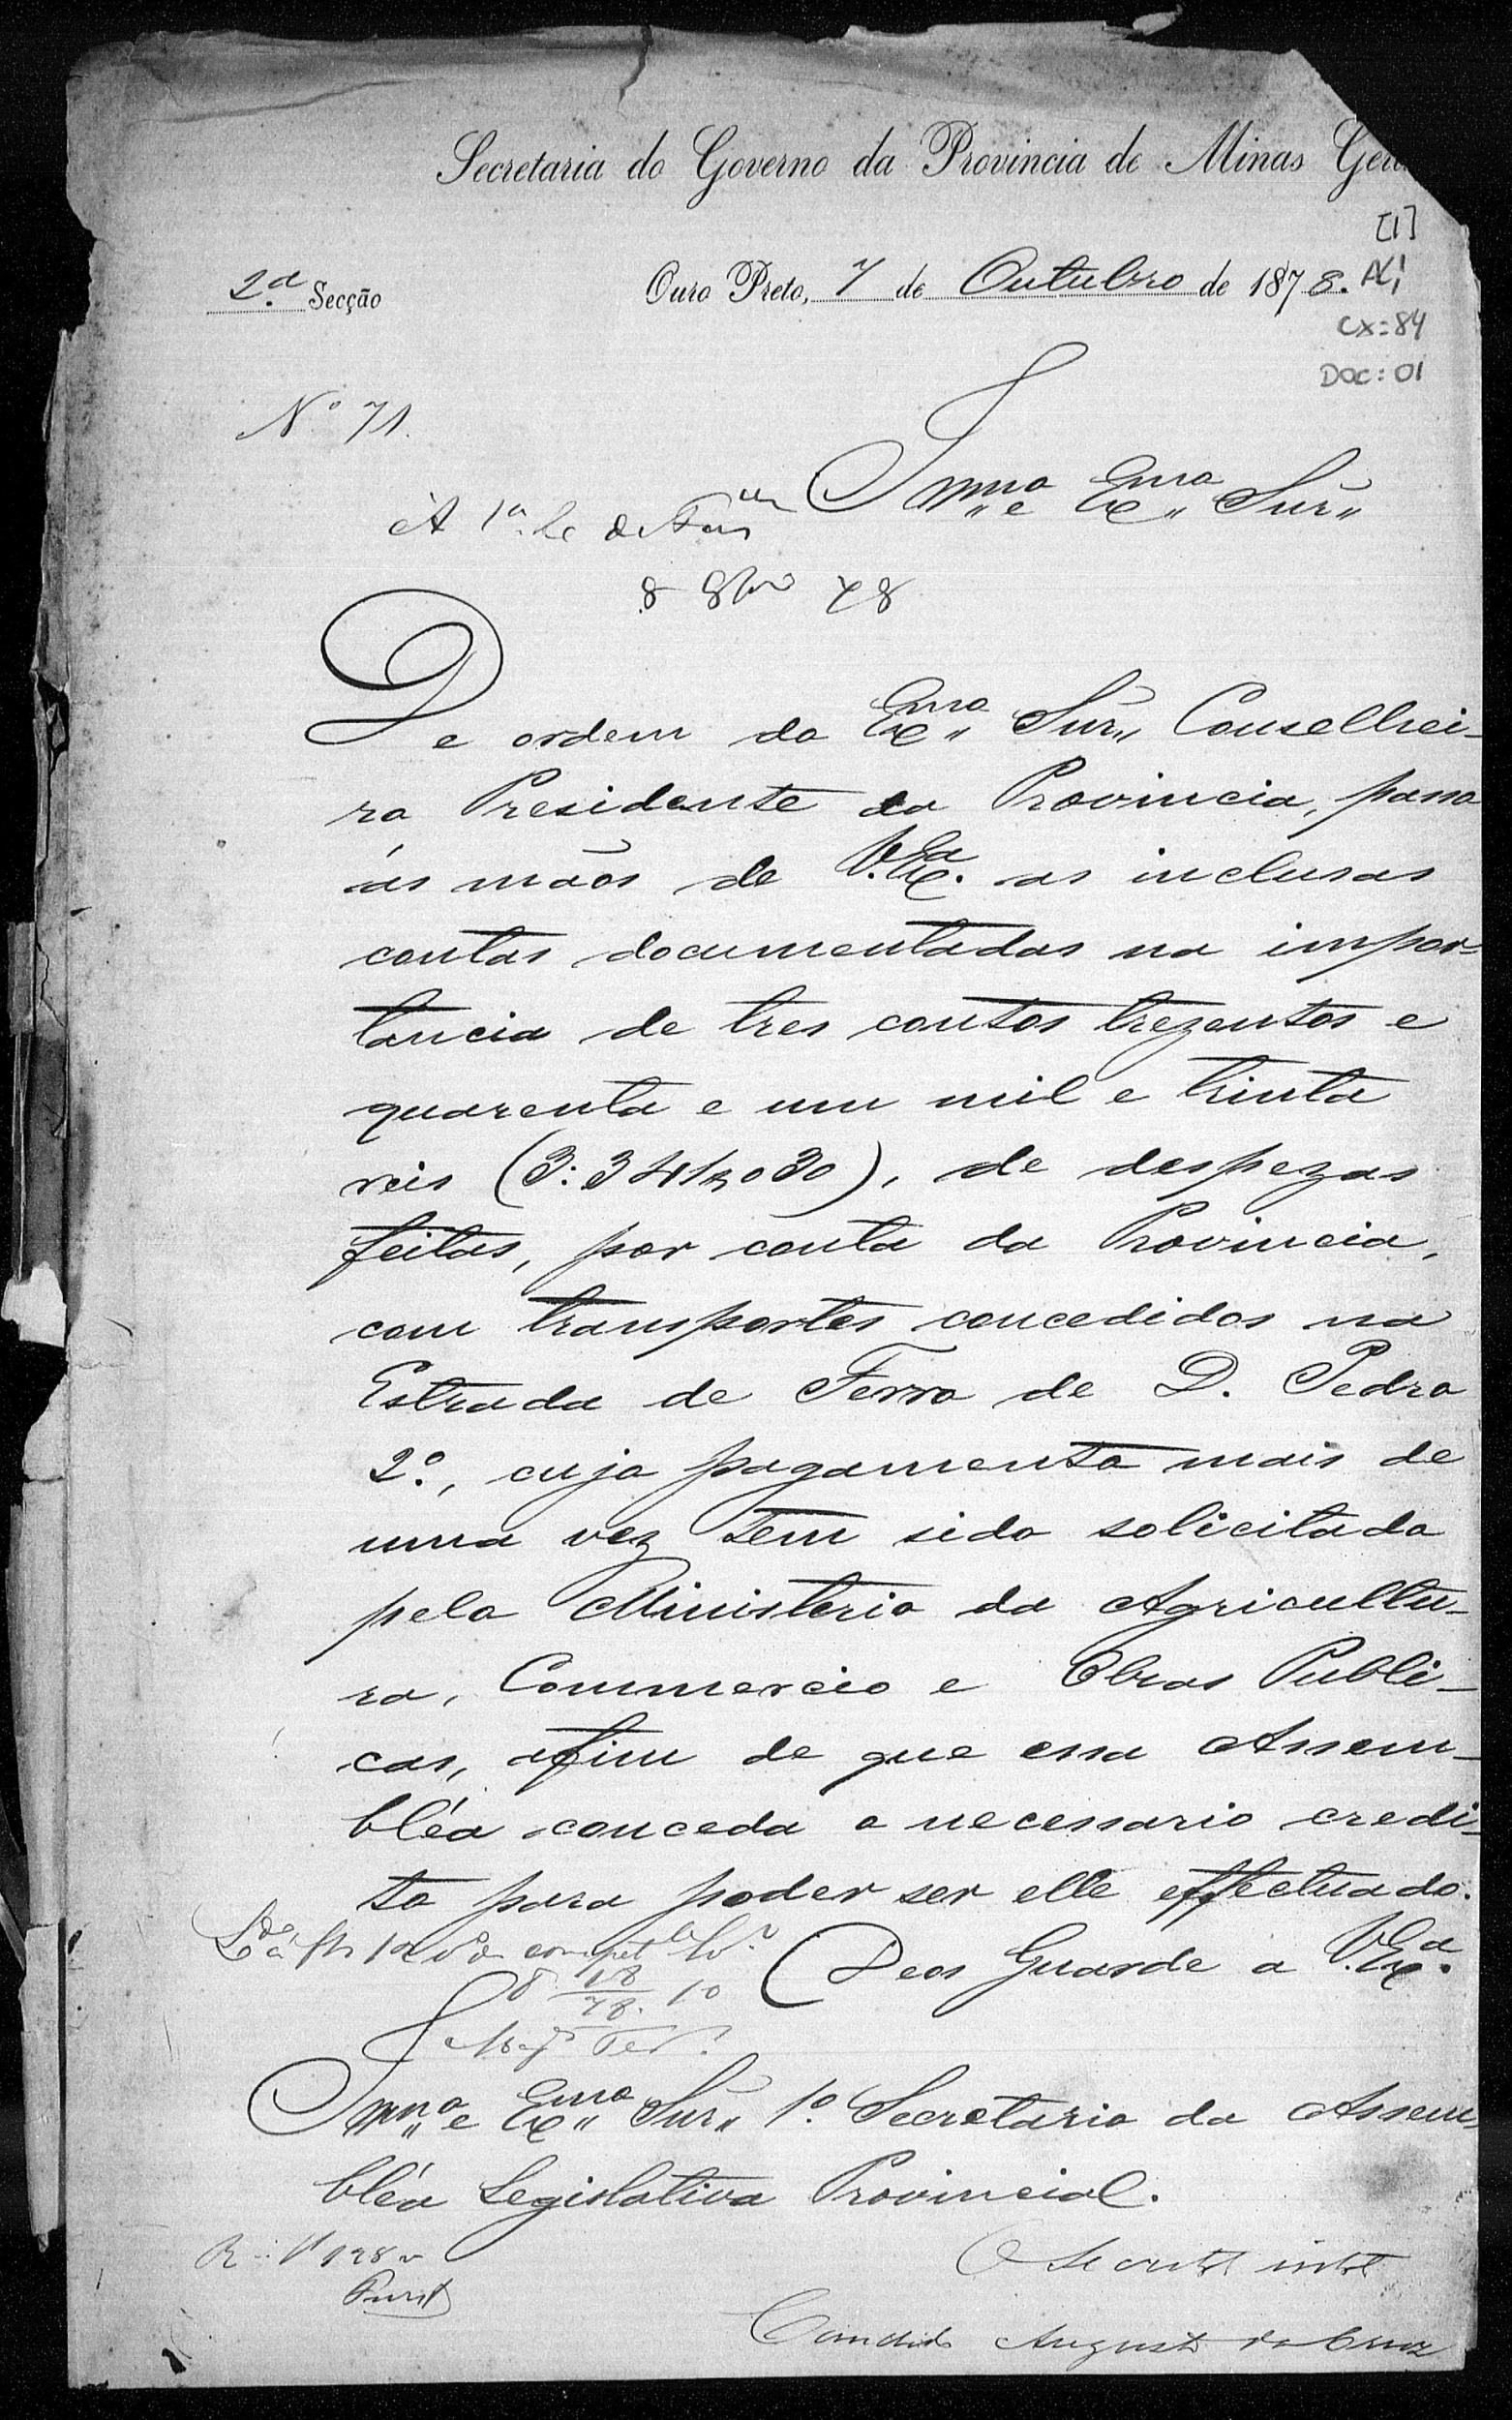 Secretaria do Governo da Provincia de Minas Ger
[1]
2.ª Secção
Ouro Preto, 7 de Outubro de 1878.
cx:84
DOC:01
Nº 71.
Illmº e Exmº Sñr
A 1ª
8 8bro 78
De ordem do Exmº Sñr Conselhei-
ro Presidente da Provincia, passo
ás mãos de V.Exª. as inclusas
contas documentadas na impor-
tancia de tres contos trezentos e
quarenta e um mil e trinta
reis (3:341$030), de despezas
feitas, por conta da Provincia,
com transportes concedidos na
Estrada de Ferro de D. Pedro
2º., cujo pagamento mais de
uma vez tem sido solicitado
pelo Ministerio da Agricultu-
ra, Commercio e Obras Publi-
cas, afim de que essa Assem-
bléa conceda o necessario credi-
to para poder ser elle effectuado.
Deos Guarde a V.Exª.
Illmº e Exmº Sñr 1º Secretario da Assem-
bléa Legislativa Provincial.
O Secretº intº
Candido Augusto da Cruz